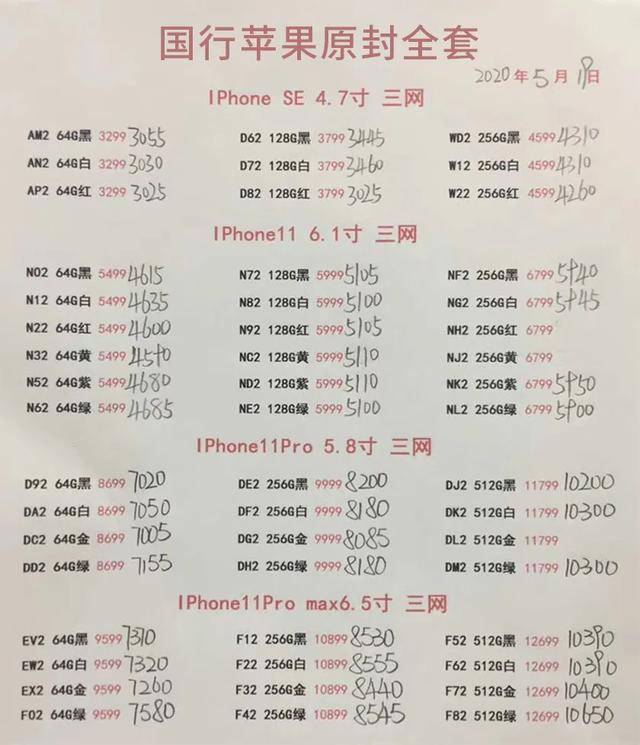 国行苹果原封全套
2020年5月19日
IPhone SE 4.7寸 三网
AM2 64G黑 3299 3055 D62 128G黑 3799 3445 WD2 256G黑 4599 4310
AN2 64G白 3299 3030 D72 128G白 3799 3460 W12 256G白 4599 4310
AP2 64G红 3299 3025 D82 128G红 3799 3025 W22 256G红 4599 4260
IPhone11 6.1寸 三网
N02 64G黑 5499 4615 N72 128G黑 5999 5105 NF2 256G黑 6799 5940
N12 64G白 5499 4635 N82 128G白 5999 5100 NG2 256G白 6799 5945
N22 64G红 5499 4600 N92 128G红 5999 5105 NH2 256G红 6799
N32 64G黄 5499 4590 NC2 128G黄 5999 5110 NJ2 256G黄 6799
N52 64G紫 5499 4680 ND2 128G紫 5999 5110 NK2 256G紫 6799 5950
N62 64G绿 5499 4685 NE2 128G绿 5999 5100 NL2 256G绿 6799 5900
IPhone11Pro 5.8寸 三网
D92 64G黑 8699 7020 DE2 256G黑 9999 8200 DJ2 512G黑 11799 10200
DA2 64G白 8699 7050 DF2 256G白 9999 8180 DK2 512G白 11799 10300
DC2 64G金 8699 7005 DG2 256G金 9999 8085 DL2 512G金 11799
DD2 64G绿 8699 7155 DH2 256G绿 9999 8180 DM2 512G绿 11799 10300
IPhone11Pro max6.5寸 三网
EV2 64G黑 9599 7370 F12 256G黑 10899 8530 F52 512G黑 12699 10390
EW2 64G白 9599 7320 F22 256G白 10899 8555 F62 512G白 12699 10390
EX2 64G金 9599 7260 F32 256G金 10899 8440 F72 512G金 12699 10400
F02 64G绿 9599 7580 F42 256G绿 10899 8545 F82 512G绿 12699 10650